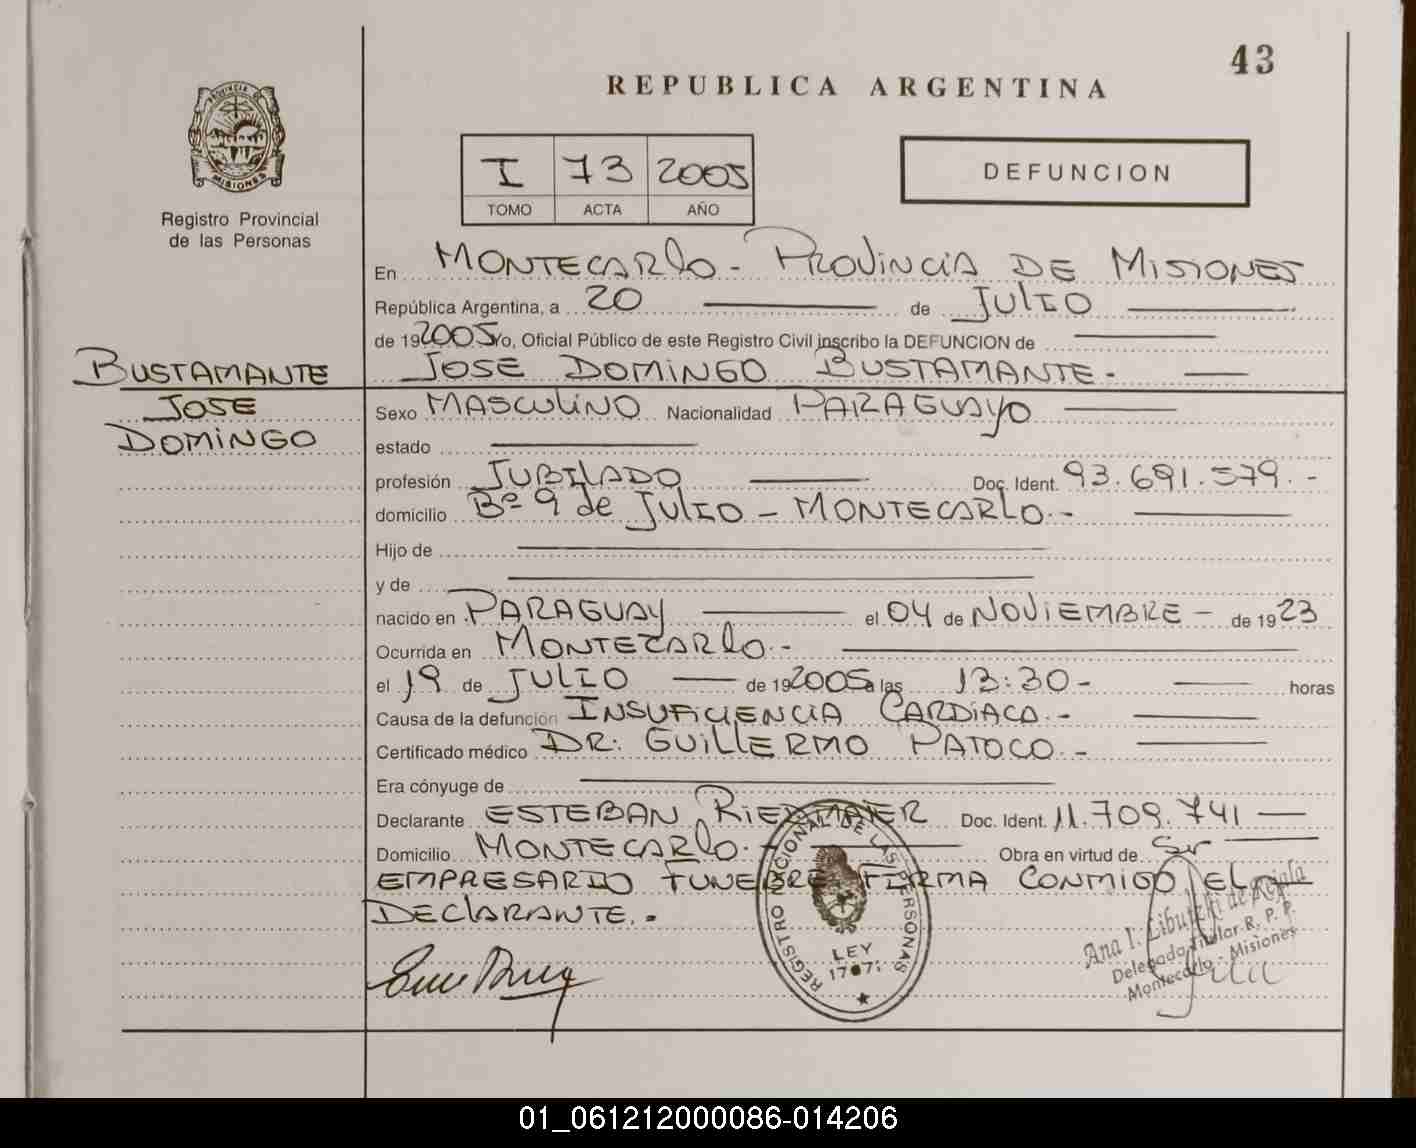 43
REPUBLICA ARGENTINA
PROVINCIA DE
MISIONES
Registro Provincial
de las Personas
I 73 2005
TOMO ACTA AÑO
DEFUNCION
En MONTECARLO - PROVINCIA DE MISIONES
República Argentina, a 20 de JULIO
de 19 2005 Yo, Oficial Público de este Registro Civil inscribo la DEFUNCION de
BUSTAMANTE
JOSE DOMINGO BUSTAMANTE.
JOSE
DOMINGO
Sexo MASCULINO Nacionalidad PARAGUAYO
estado
profesión JUBILADO Doc. Ident. 93.691.579.-
domicilio Bº 9 de JULIO - MONTECARLO.-
Hijo de
y de
nacido en PARAGUAY el 04 de NOVIEMBRE - de 19 23
Ocurrida en MONTECARLO.-
el 19 de JULIO de 19 2005 a las 13:30- horas
Causa de la defunción INSUFICIENCIA CARDIACA.-
Certificado médico DR: GUILLERMO PATOCO.-
Era cónyuge de
Declarante ESTEBAN RIEDMAIER Doc. Ident. 11.709.741
Domicilio MONTECARLO. Obra en virtud de Ser
EMPRESARIO FUNEBRE FIRMA CONMIGO EL
DECLARANTE.
REGISTRO NACIONAL DE LAS PERSONAS
LEY
Ana I. de
Delegada Titular R. P. P.
Montecarlo - Misiones
01_061212000086-014206